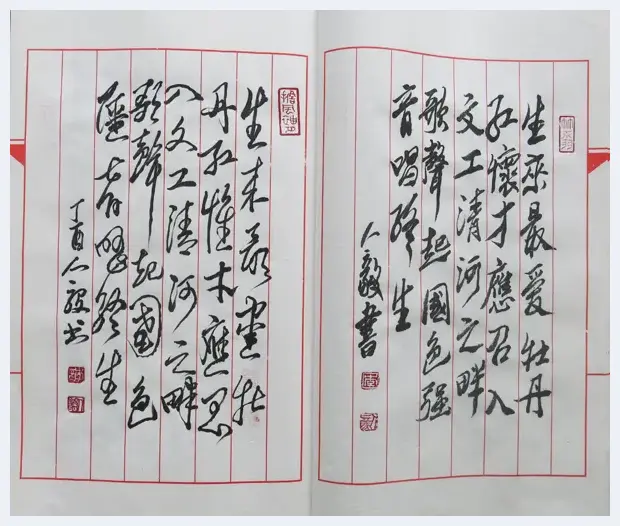 生來最愛牡丹
紅懷才應召入
文工清河之畔
歌聲起國色强
音唱終生
人毅書
生来最愛牡
丹紅懷才應召
入文工清河之畔
歌聲起國色
强音唱終生
丁酉人毅书